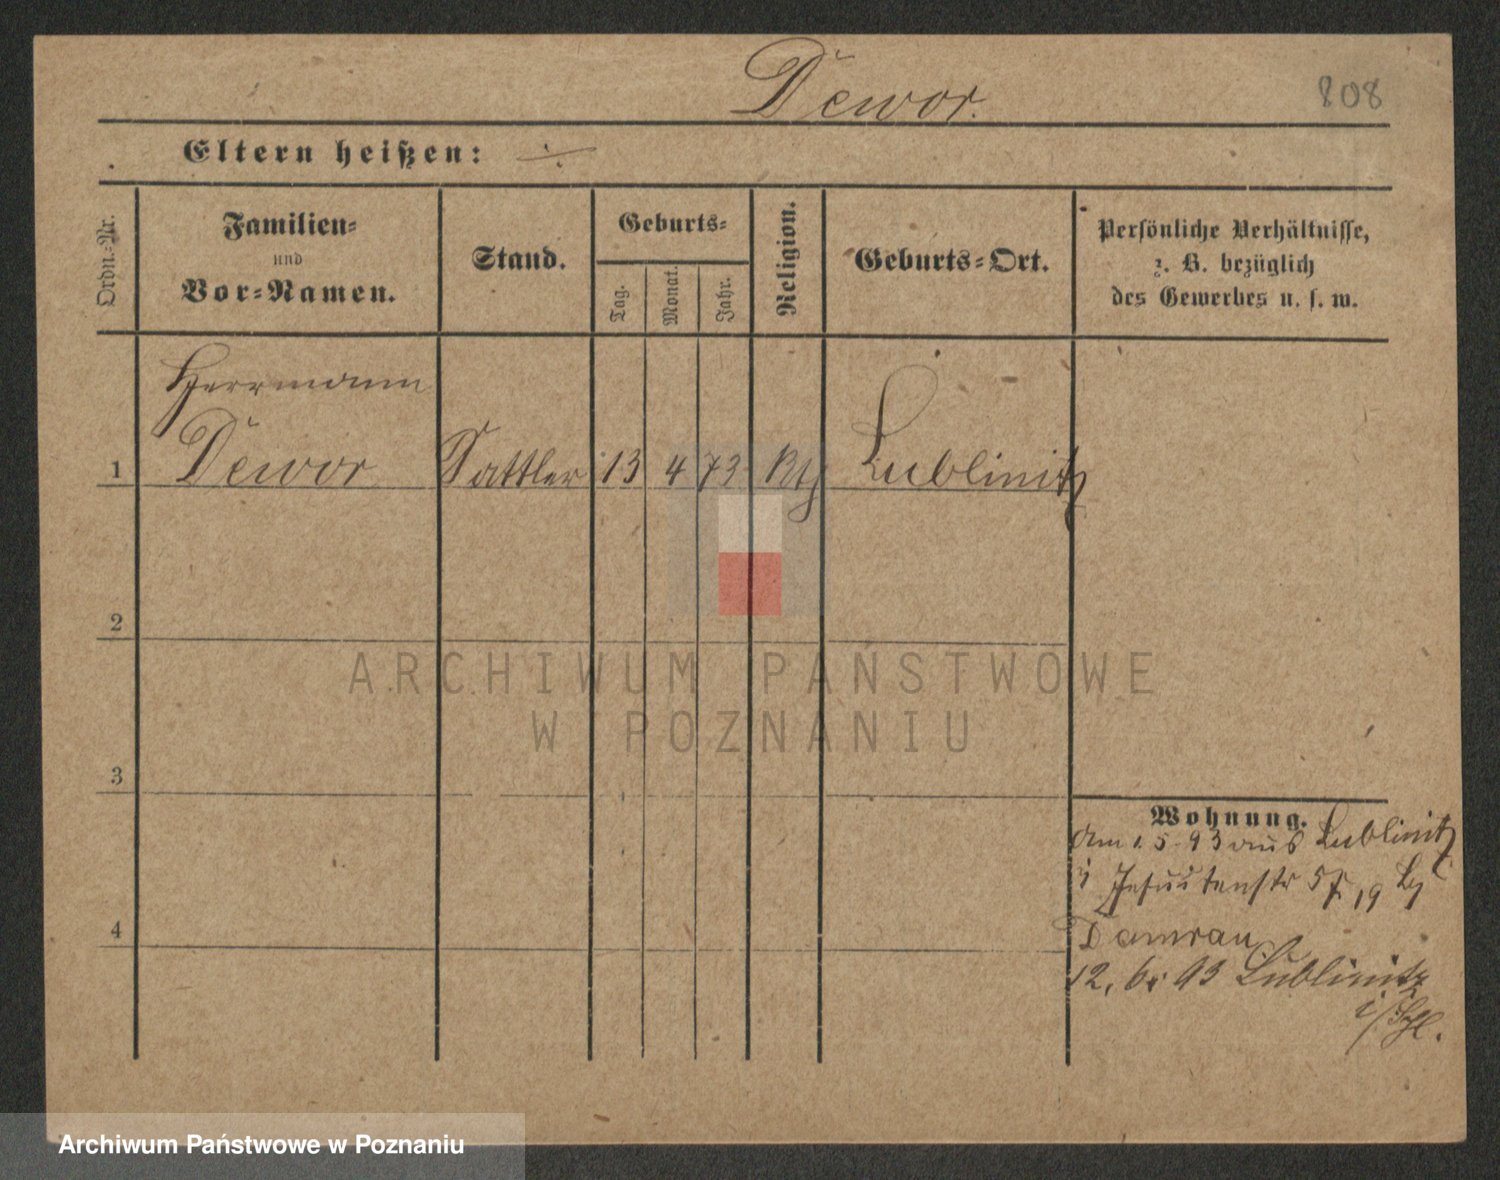 Dewor.
808
Eltern heißen:
Ordn.-Nr.
Familien-
und
Vor-Namen.
Stand.
Geburts-
Tag.
Monat.
Jahr.
Religion.
Geburts-Ort.
Persönliche Verhältnisse,
z. B. bezüglich
des Gewerbes u. s. w.
Herrmann
1 Dewor Sattler 13 4 73 Kth Lublinitz
2
3
4
Wohnung.
Am 1.5.93 aus Lublinitz
Jesuitenstr 5 19
Damrau
12. 6. 93 Lublinitz
ARCHIWUM PAŃSTWOWE
W POZNANIU
Archiwum Państwowe w Poznaniu